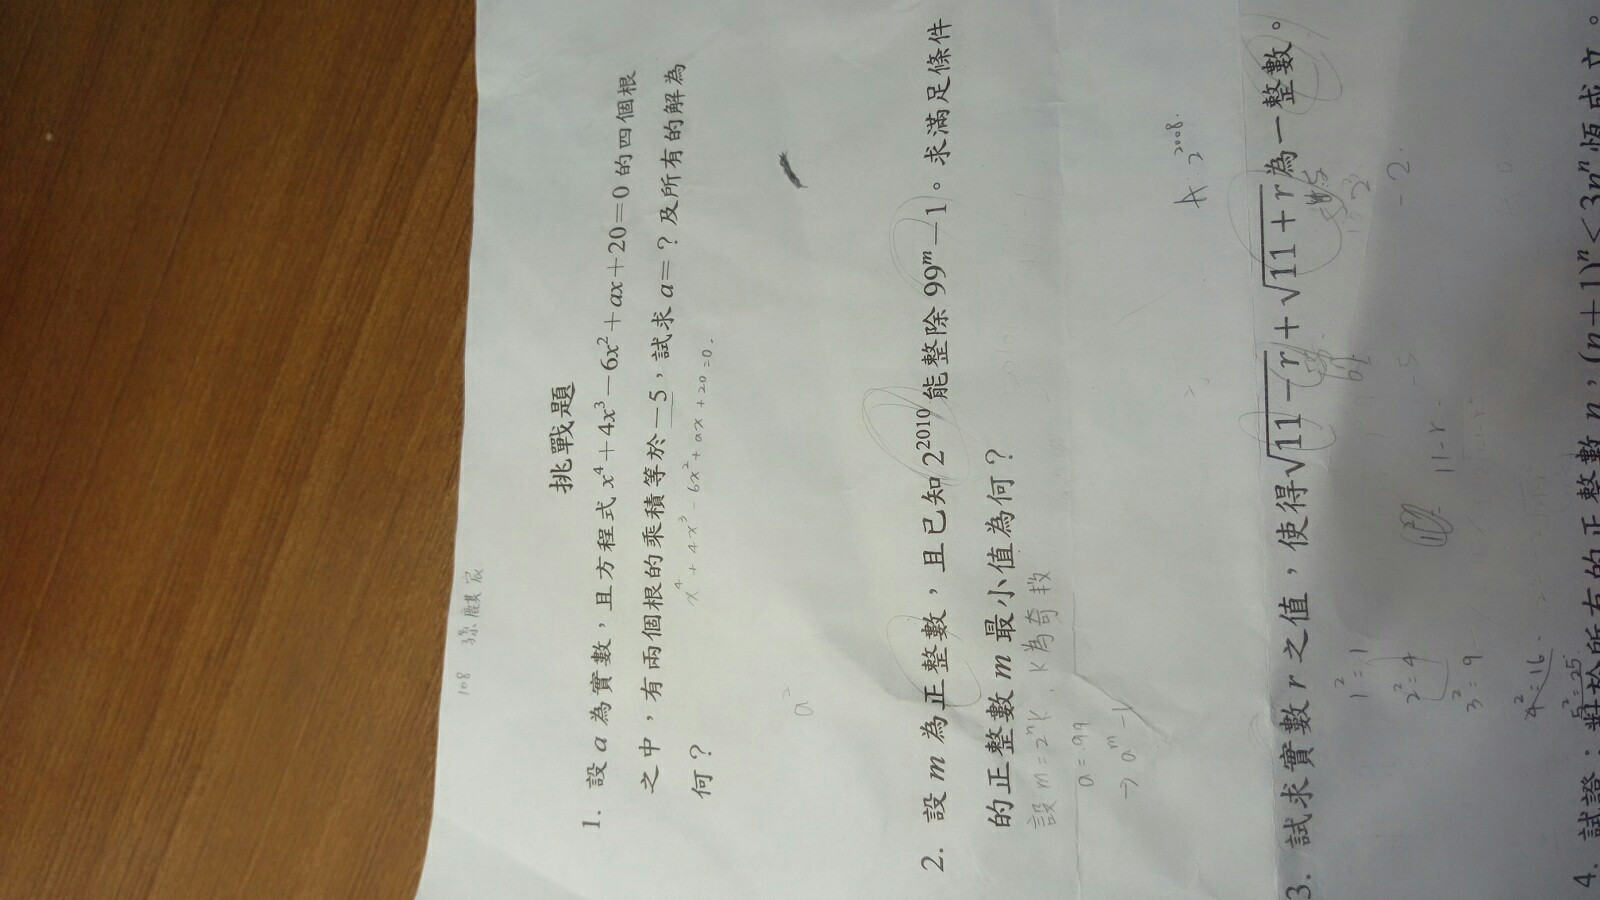 108
挑戰題
1. 設 a 為實數，且方程式 x⁴＋4x³－6x²＋ax＋20＝0 的四個根
之中，有兩個根的乘積等於－5，試求 a＝？及所有的解為
何？
x⁴ + 4x³ - 6x² + ax + 20 = 0.
a²
2. 設 m 為正整數，且已知 2²⁰¹⁰ 能整除 99ᵐ－1。求滿足條件
的正整數 m 最小值為何？
設 m=2ⁿk, k為奇數
a=99
→ aᵐ-1
A: 2²⁰⁰⁸.
3. 試求實數 r 之值，使得√11－r＋√11＋r 為一整數。
1²=1
2²=4
3²=9
4²=16
5²=25
11-r
-5
-2
4. 試證：對於所有的正整數 n，(n＋1)ⁿ＜3nⁿ 恆成立。